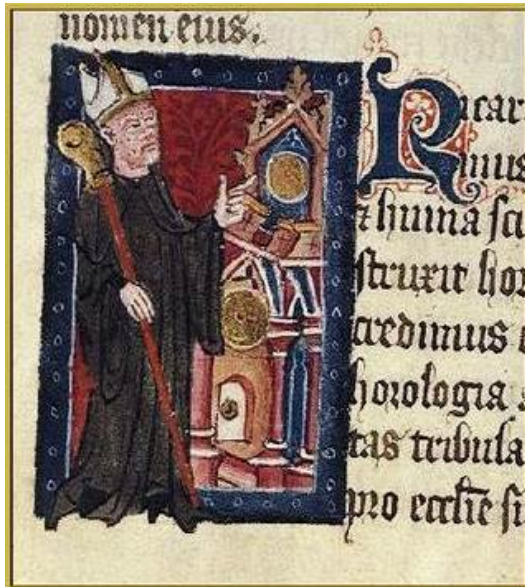 nomen eius.
Ricar
mus
& humā sci
struxit hor
credimus
horologia
tas tribula
pro ecclie si